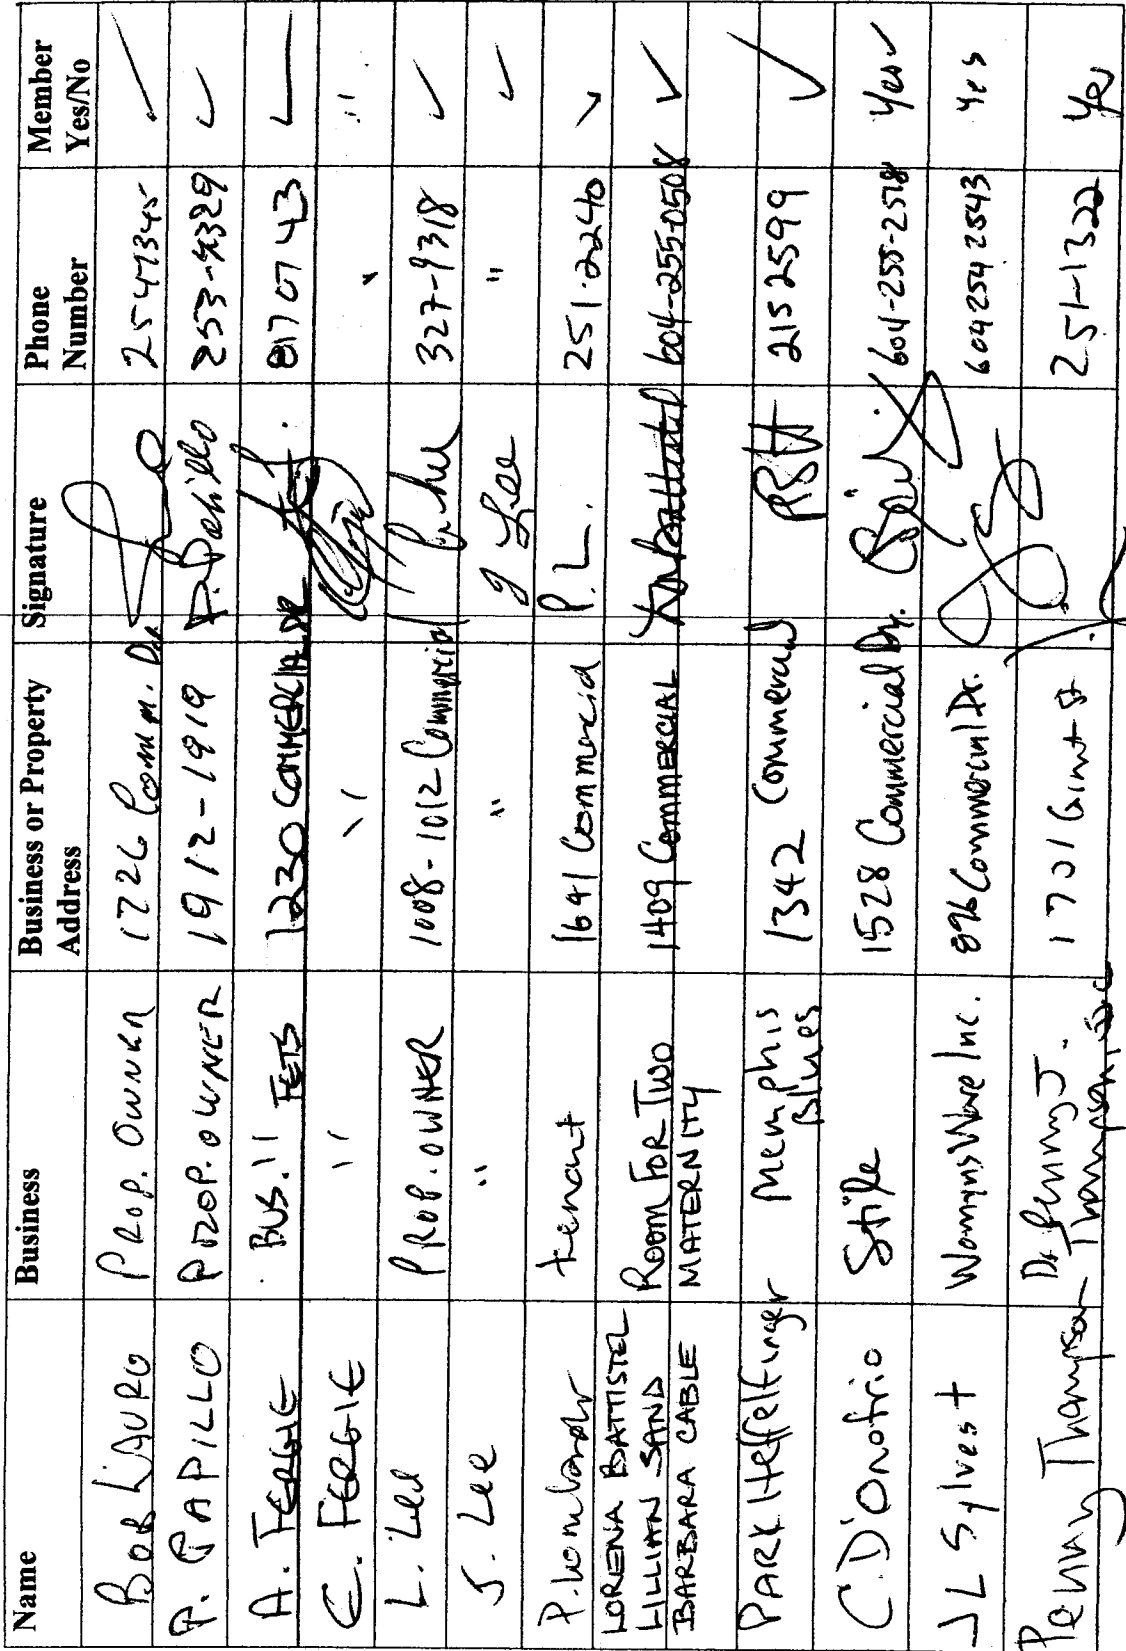 Name Business Business or Property Address Signature Phone Number Member Yes/No
BOB LAURO PROP. OWNER 1726 Comm. Dr. 2547345 ✓
P. PAPILLO PROP. OWNER 1912-1919 P. Papillo 253-9329 ✓
A. FERGIE BUS. !! FETS 1230 COMMERCIAL DR 8170743 ✓
E. FERGIE " " " "
L. Lee PROP. OWNER 1008-1012 Commercial 327-9318 ✓
J. Lee " " J Lee " ✓
P. Lombardr tenant 1641 Commercial P. L. 251-2240 ✓
LORENA BATTISTEL ROOM FOR TWO 1409 COMMERCIAL 604-255-0508 ✓
LILLIAN SAND MATERNITY
BARBARA CABLE
PARK Heffelfinger Memphis Blues 1342 Commercial PSH 2152599 ✓
C D'Onofrio Stile 1528 Commercial Dr. 604-255-2518 Yes ✓
JL Sylvest Womyns Ware Inc. 896 Commercial Dr. 6042542543 Yes
Penny Thompson Dr. Penny J. Thompson Inc 1701 Grant St 251-1322 Yes